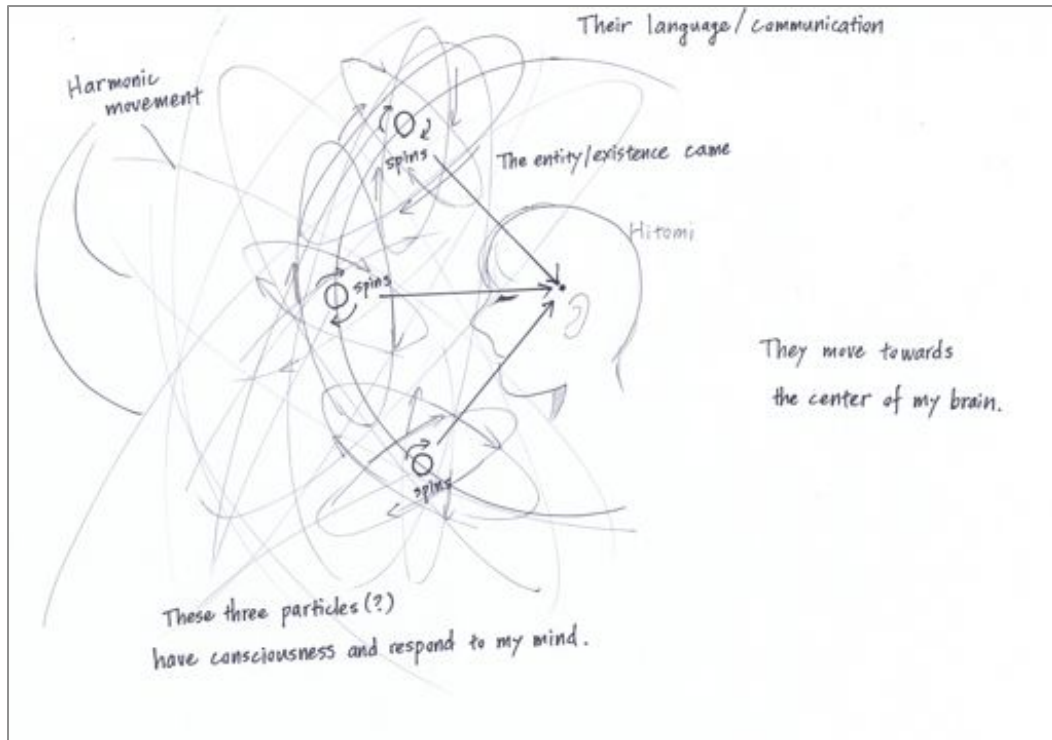 Their language/communication
Harmonic
movement
spins
The entity/existence came
Hitomi
spins
They move towards
the center of my brain.
spins
These three particles(?)
have consciousness and respond to my mind.